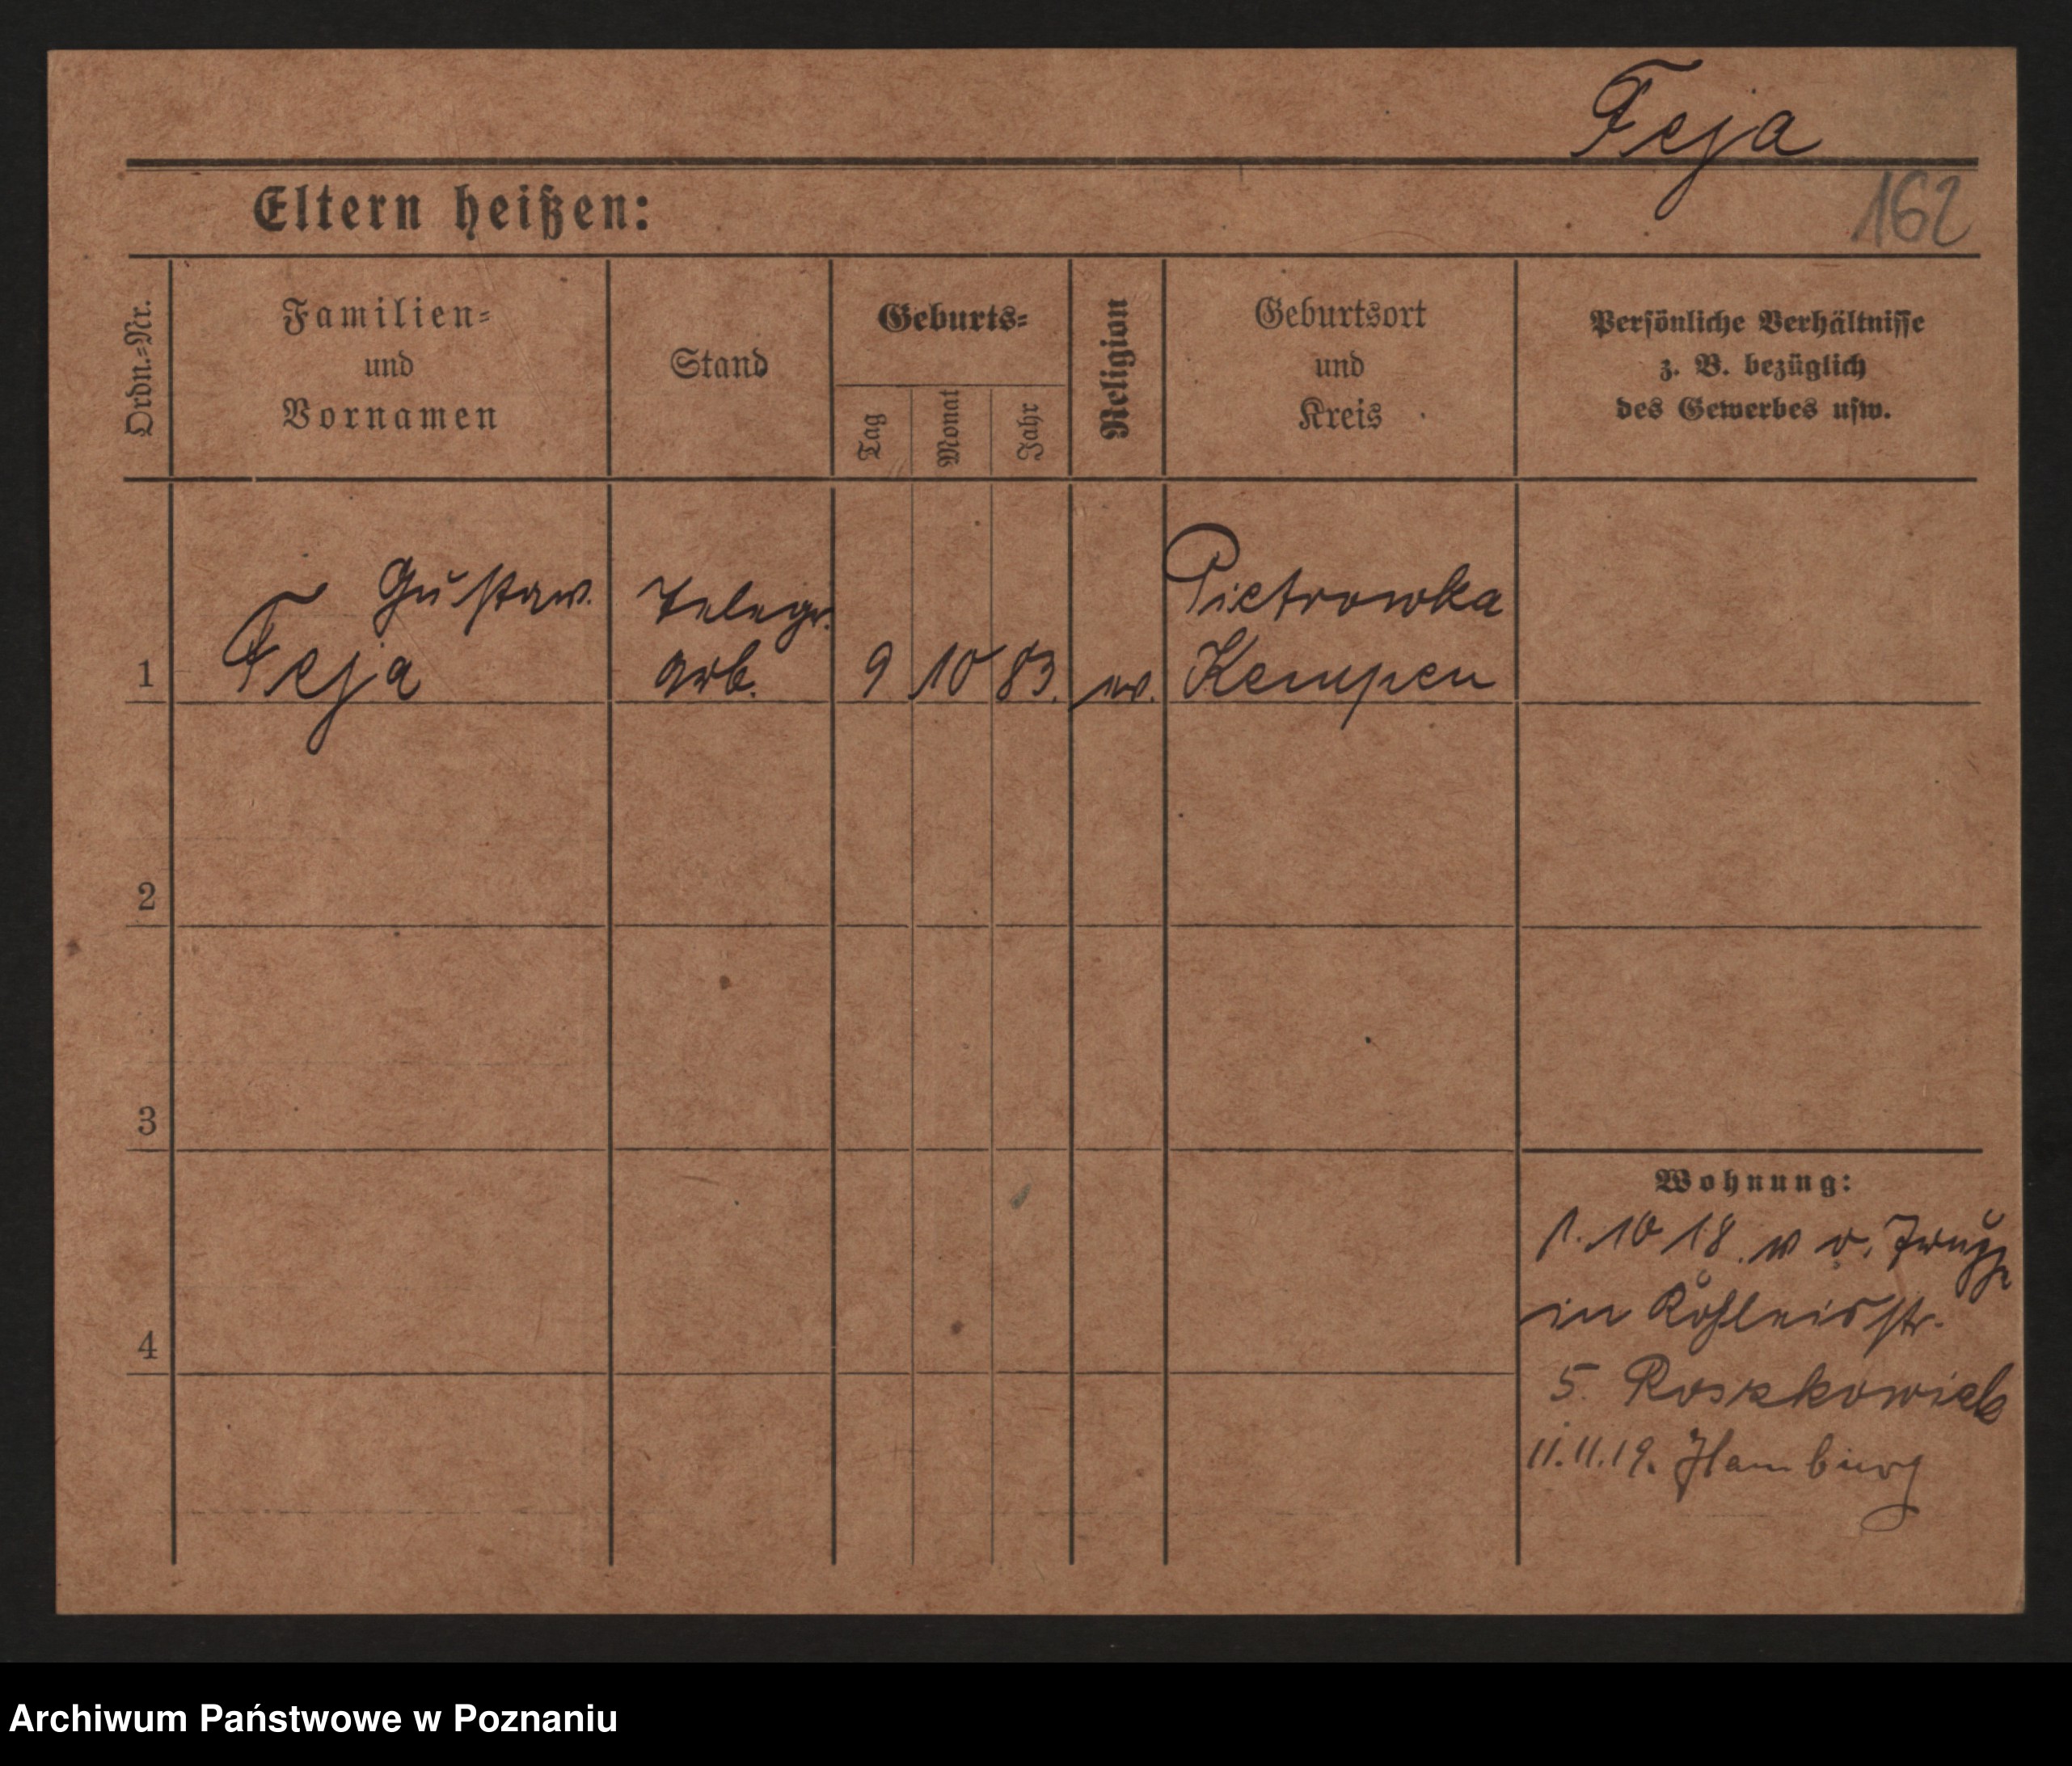 Feja
162
Eltern heißen:
Ordn.=Nr.
Familien=
und
Vornamen
Stand
Geburts=
Tag
Monat
Jahr
Religion
Geburtsort
und
Kreis
Persönliche Verhältnisse
z. B. bezüglich
des Gewerbes usw.
1
Gustaw.
Feja
Telegr.
arb.
9
10
83.
ev.
Pietrowka
Kempen
2
3
4
Wohnung:
1. 10 18. v
in
str.
5. Roszkowiak
11.11.19. Hamburg
Archiwum Państwowe w Poznaniu